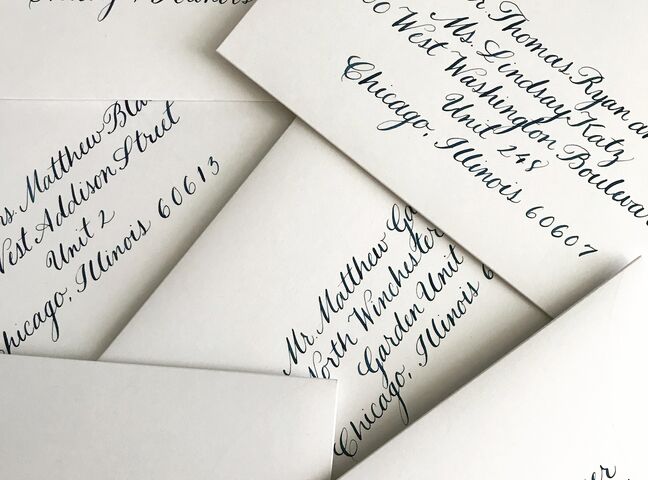 Illinois
r. Thomas Ryan an
Ms. Lindsay Katz
00 West Washington Bouleva
Unit 248
Chicago, Illinois 60607
rs. Matthew Bla
West Addison Street
Unit 2
Chicago, Illinois 60613
Mr. Matthew Ga
North Winchester
Garden Unit
Chicago, Illinois 6
er